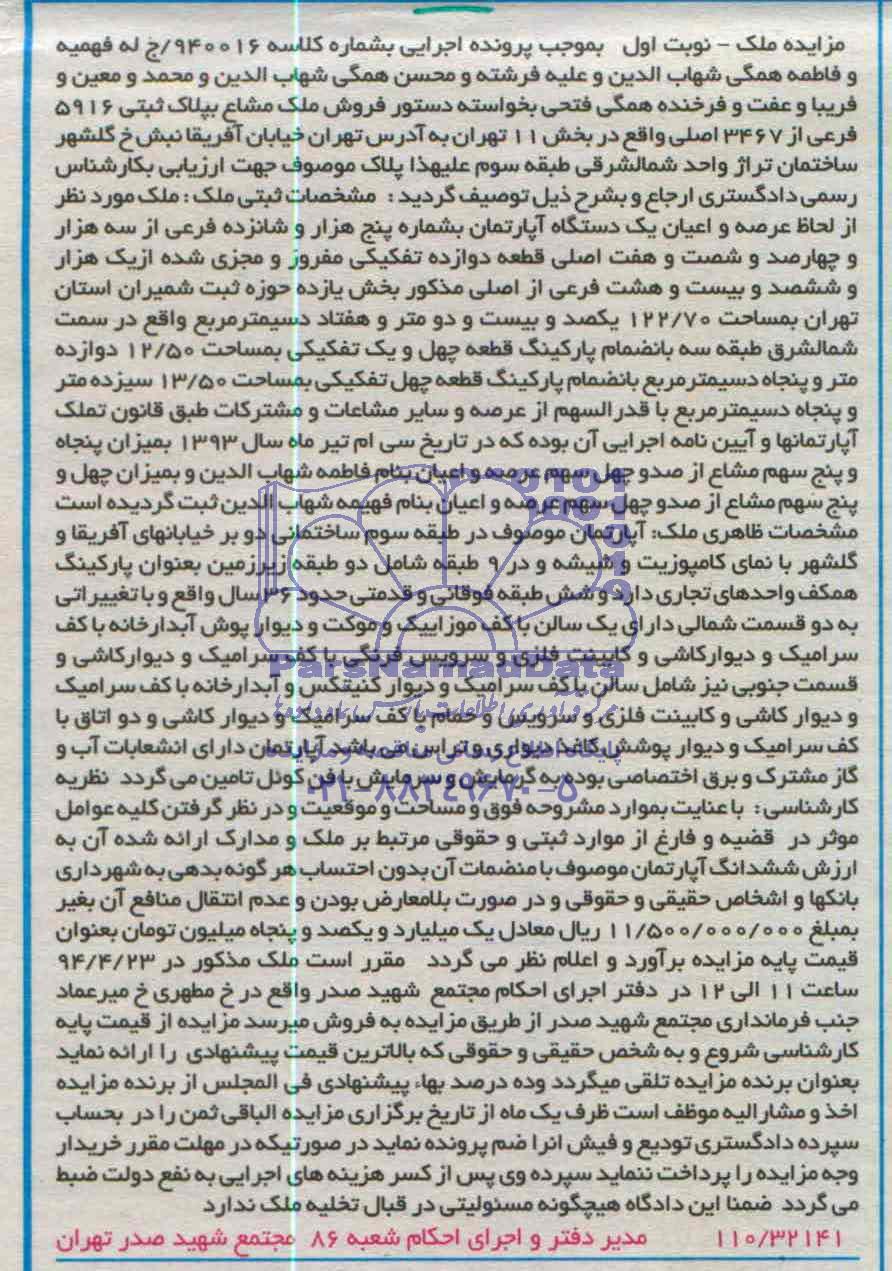 مزایده ملک - نوبت اول   بموجب پرونده اجرایی بشماره کلاسه ۹۴۰۰۱۶/ج له فهمیه
و فاطمه همگی شهاب الدین و علیه فرشته و محسن همگی شهاب الدین و محمد و معین و
فریبا و عفت و فرخنده همگی فتحی بخواسته دستور فروش ملک مشاع بپلاک ثبتی ۵۹۱۶
فرعی از ۳۴۶۷ اصلی واقع در بخش ۱۱ تهران به آدرس تهران خیابان آفریقا نبش خ گلشهر
ساختمان تراژ واحد شمالشرقی طبقه سوم علیهذا پلاک موصوف جهت ارزیابی بکارشناس
رسمی دادگستری ارجاع و بشرح ذیل توصیف گردید : مشخصات ثبتی ملک : ملک مورد نظر
از لحاظ عرصه و اعیان یک دستگاه آپارتمان بشماره پنج هزار و شانزده فرعی از سه هزار
و چهارصد و شصت و هفت اصلی قطعه دوازده تفکیکی مفروز و مجزی شده ازیک هزار
و ششصد و بیست و هشت فرعی از اصلی مذکور بخش یازده حوزه ثبت شمیران استان
تهران بمساحت ۱۲۲/۷۰ یکصد و بیست و دو متر و هفتاد دسیمترمربع واقع در سمت
شمالشرق طبقه سه بانضمام پارکینگ قطعه چهل و یک تفکیکی بمساحت ۱۲/۵۰ دوازده
متر و پنجاه دسیمترمربع بانضمام پارکینگ قطعه چهل تفکیکی بمساحت ۱۳/۵۰ سیزده متر
و پنجاه دسیمترمربع با قدرالسهم از عرصه و سایر مشاعات و مشترکات طبق قانون تملک
آپارتمانها و آیین نامه اجرایی آن بوده که در تاریخ سی ام تیر ماه سال ۱۳۹۳ بمیزان پنجاه
و پنج سهم مشاع از صدو چهل سهم عرصه و اعیان بنام فاطمه شهاب الدین و بمیزان چهل و
پنج سهم مشاع از صدو چهل سهم عرصه و اعیان بنام فهیمه شهاب الدین ثبت گردیده است
مشخصات ظاهری ملک: آپارتمان موصوف در طبقه سوم ساختمانی دو بر خیابانهای آفریقا و
گلشهر با نمای کامپوزیت و شیشه و در ۹ طبقه شامل دو طبقه زیرزمین بعنوان پارکینگ
همکف واحدهای تجاری دارد و شش طبقه فوقانی و قدمتی حدود ۳۶ سال واقع و با تغییراتی
به دو قسمت شمالی دارای یک سالن با کف موزاییک و موکت و دیوار پوش آبدارخانه با کف
سرامیک و دیوارکاشی و کابینت فلزی و سرویس فرنگی با کف سرامیک و دیوارکاشی و
قسمت جنوبی نیز شامل سالن با کف سرامیک و دیوار کنیتکس و آبدارخانه با کف سرامیک
و دیوار کاشی و کابینت فلزی و سرویس و حمام با کف سرامیک و دیوار کاشی و دو اتاق با
کف سرامیک و دیوار پوشش کاغذ دیواری و تراس می باشد آپارتمان دارای انشعابات آب و
گاز مشترک و برق اختصاصی بوده به گرمایش و سرمایش با فن کوئل تامین می گردد  نظریه
کارشناسی : با عنایت بموارد مشروحه فوق و مساحت و موقعیت و در نظر گرفتن کلیه عوامل
موثر در قضیه و فارغ از موارد ثبتی و حقوقی مرتبط بر ملک و مدارک ارائه شده آن به
ارزش ششدانگ آپارتمان موصوف با منضمات آن بدون احتساب هر گونه بدهی به شهرداری
بانکها و اشخاص حقیقی و حقوقی و در صورت بلامعارض بودن و عدم انتقال منافع آن بغیر
بمبلغ ۱۱/۵۰۰/۰۰۰/۰۰۰ ریال معادل یک میلیارد و یکصد و پنجاه میلیون تومان بعنوان
قیمت پایه مزایده برآورد و اعلام نظر می گردد  مقرر است ملک مذکور در ۹۴/۴/۲۳
ساعت ۱۱ الی ۱۲ در دفتر اجرای احکام مجتمع شهید صدر واقع در خ مطهری خ میرعماد
جنب فرمانداری مجتمع شهید صدر از طریق مزایده به فروش میرسد مزایده از قیمت پایه
کارشناسی شروع و به شخص حقیقی و حقوقی که بالاترین قیمت پیشنهادی را ارائه نماید
بعنوان برنده مزایده تلقی میگردد وده درصد بهاء پیشنهادی فی المجلس از برنده مزایده
اخذ و مشارالیه موظف است ظرف یک ماه از تاریخ برگزاری مزایده الباقی ثمن را در بحساب
سپرده دادگستری تودیع و فیش انرا ضم پرونده نماید در صورتیکه در مهلت مقرر خریدار
وجه مزایده را پرداخت ننماید سپرده وی پس از کسر هزینه های اجرایی به نفع دولت ضبط
می گردد ضمنا این دادگاه هیچگونه مسئولیتی در قبال تخلیه ملک ندارد
۱۱۰/۳۲۱۴۱   مدیر دفتر و اجرای احکام شعبه ۸۶ مجتمع شهید صدر تهران
ParsNamadData
پایگاه اطلاع رسانی مناقصه و مزایده
۰۲۱-۸۸۳۴۹۶۷۰-۵